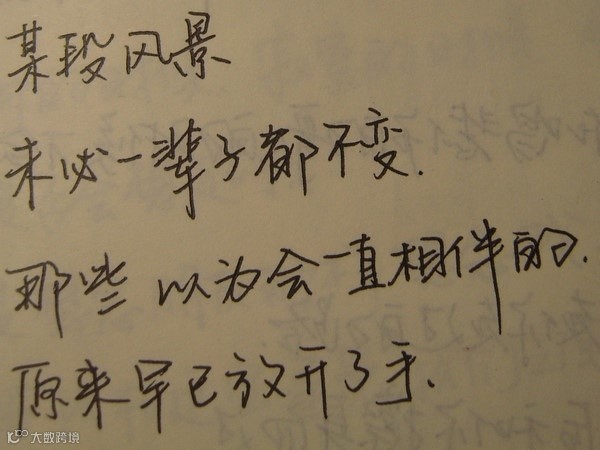 某段风景
未必一辈子都不变.
那些以为会一直相伴的.
原来早已放开了手.
大数跨境